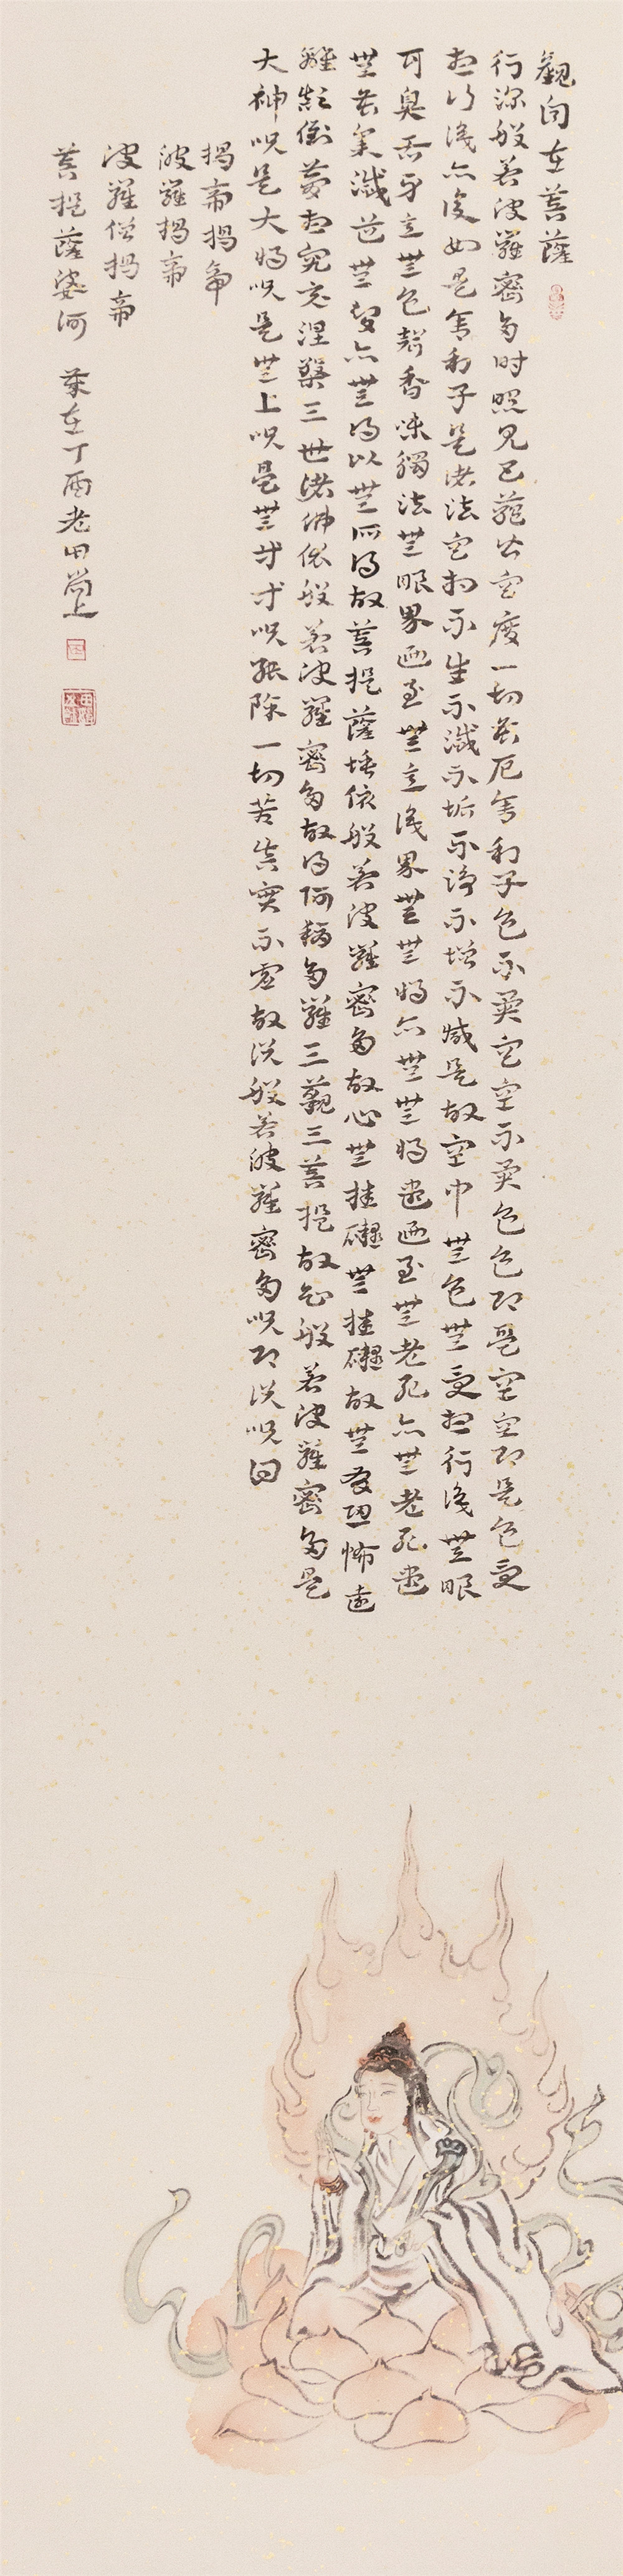 觀自在菩薩
行深般若波羅密多时照見五蕴皆空度一切苦厄舍利子色不異空空不異色色即是空空即是色受
想行識亦復如是舍利子是诸法空相不生不滅不垢不淨不增不减是故空中無色無受想行識無眼
耳鼻舌身意無色聲香味觸法無眼界廼至無意識界無無明亦無無明盡廼至無老死亦無老死盡
無苦集滅道無智亦無得以無所得故菩提薩埵依般若波羅密多故心無挂礙無挂礙故無有恐怖遠
離顛倒夢想究竟涅槃三世诸佛依般若波羅密多故得阿耨多羅三藐三菩提故知般若波羅密多是
大神呪是大明呪是無上呪是無等等呪能除一切苦真實不虚故说般若波羅密多呪即说呪曰
揭帝揭帝
波羅揭帝
波羅僧揭帝
菩提薩婆诃 歲在丁酉老田上